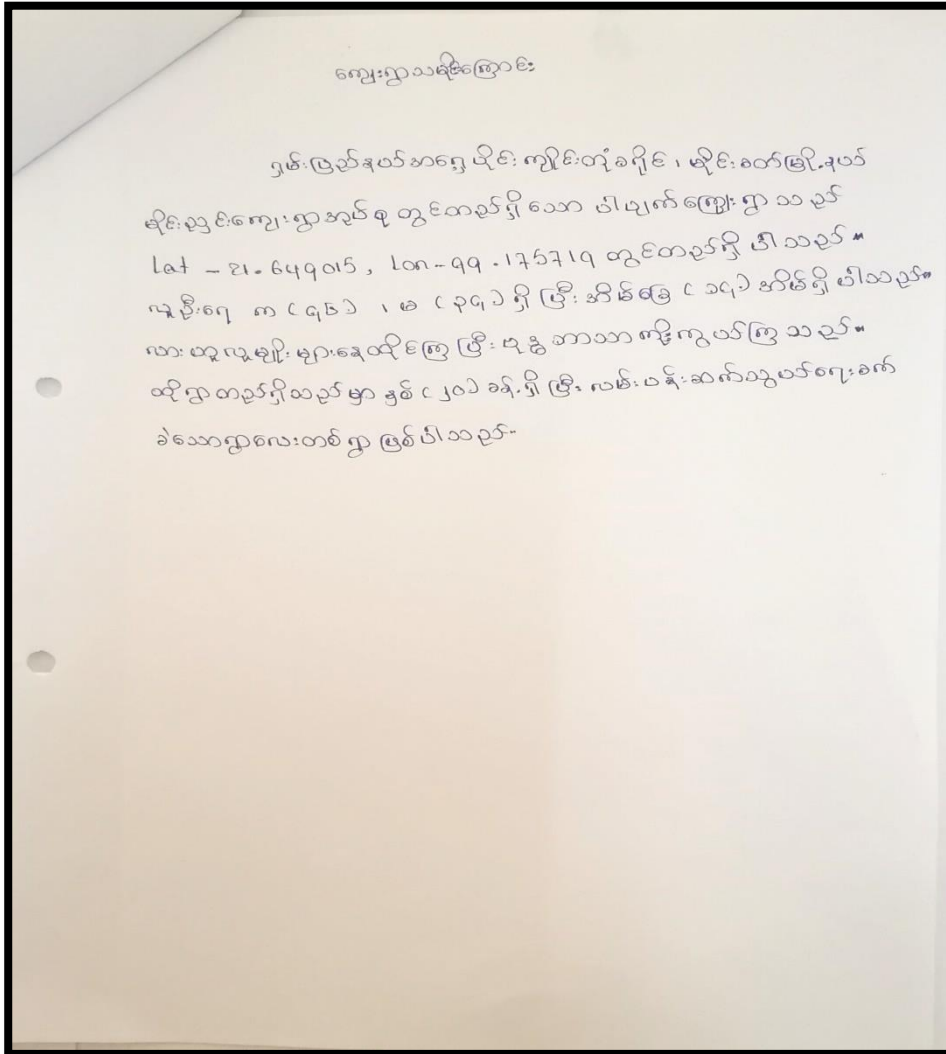 ကျေးရွာသမိုင်းကြောင်း
ရှမ်းပြည်နယ်အရှေ့ပိုင်း ကျိုင်းတုံခရိုင်၊ မိုင်းခတ်မြို့နယ်
မိုင်းညှင်းကျေးရွာအုပ်စု တွင်တည်ရှိသော ပါပျက်ကျေးရွာသည်
Lat - 21.649015, Lon-99.175719 တွင်တည်ရှိပါသည်။
လူဦးရေ က (၄၆) ၊ မ (၃၄) ရှိပြီး အိမ်ခြေ (၁၄) အိမ်ရှိပါသည်။
လားဟူလူမျိုးများနေထိုင်ကြပြီး ဗုဒ္ဓဘာသာကိုးကွယ်ကြသည်။
ထိုရွာတည်ရှိသည်မှာ နှစ် (၂၀) ခန့်ရှိပြီး လမ်းပန်းဆက်သွယ်ရေးခက်
ခဲသောရွာလေးတစ်ရွာ ဖြစ်ပါသည်။